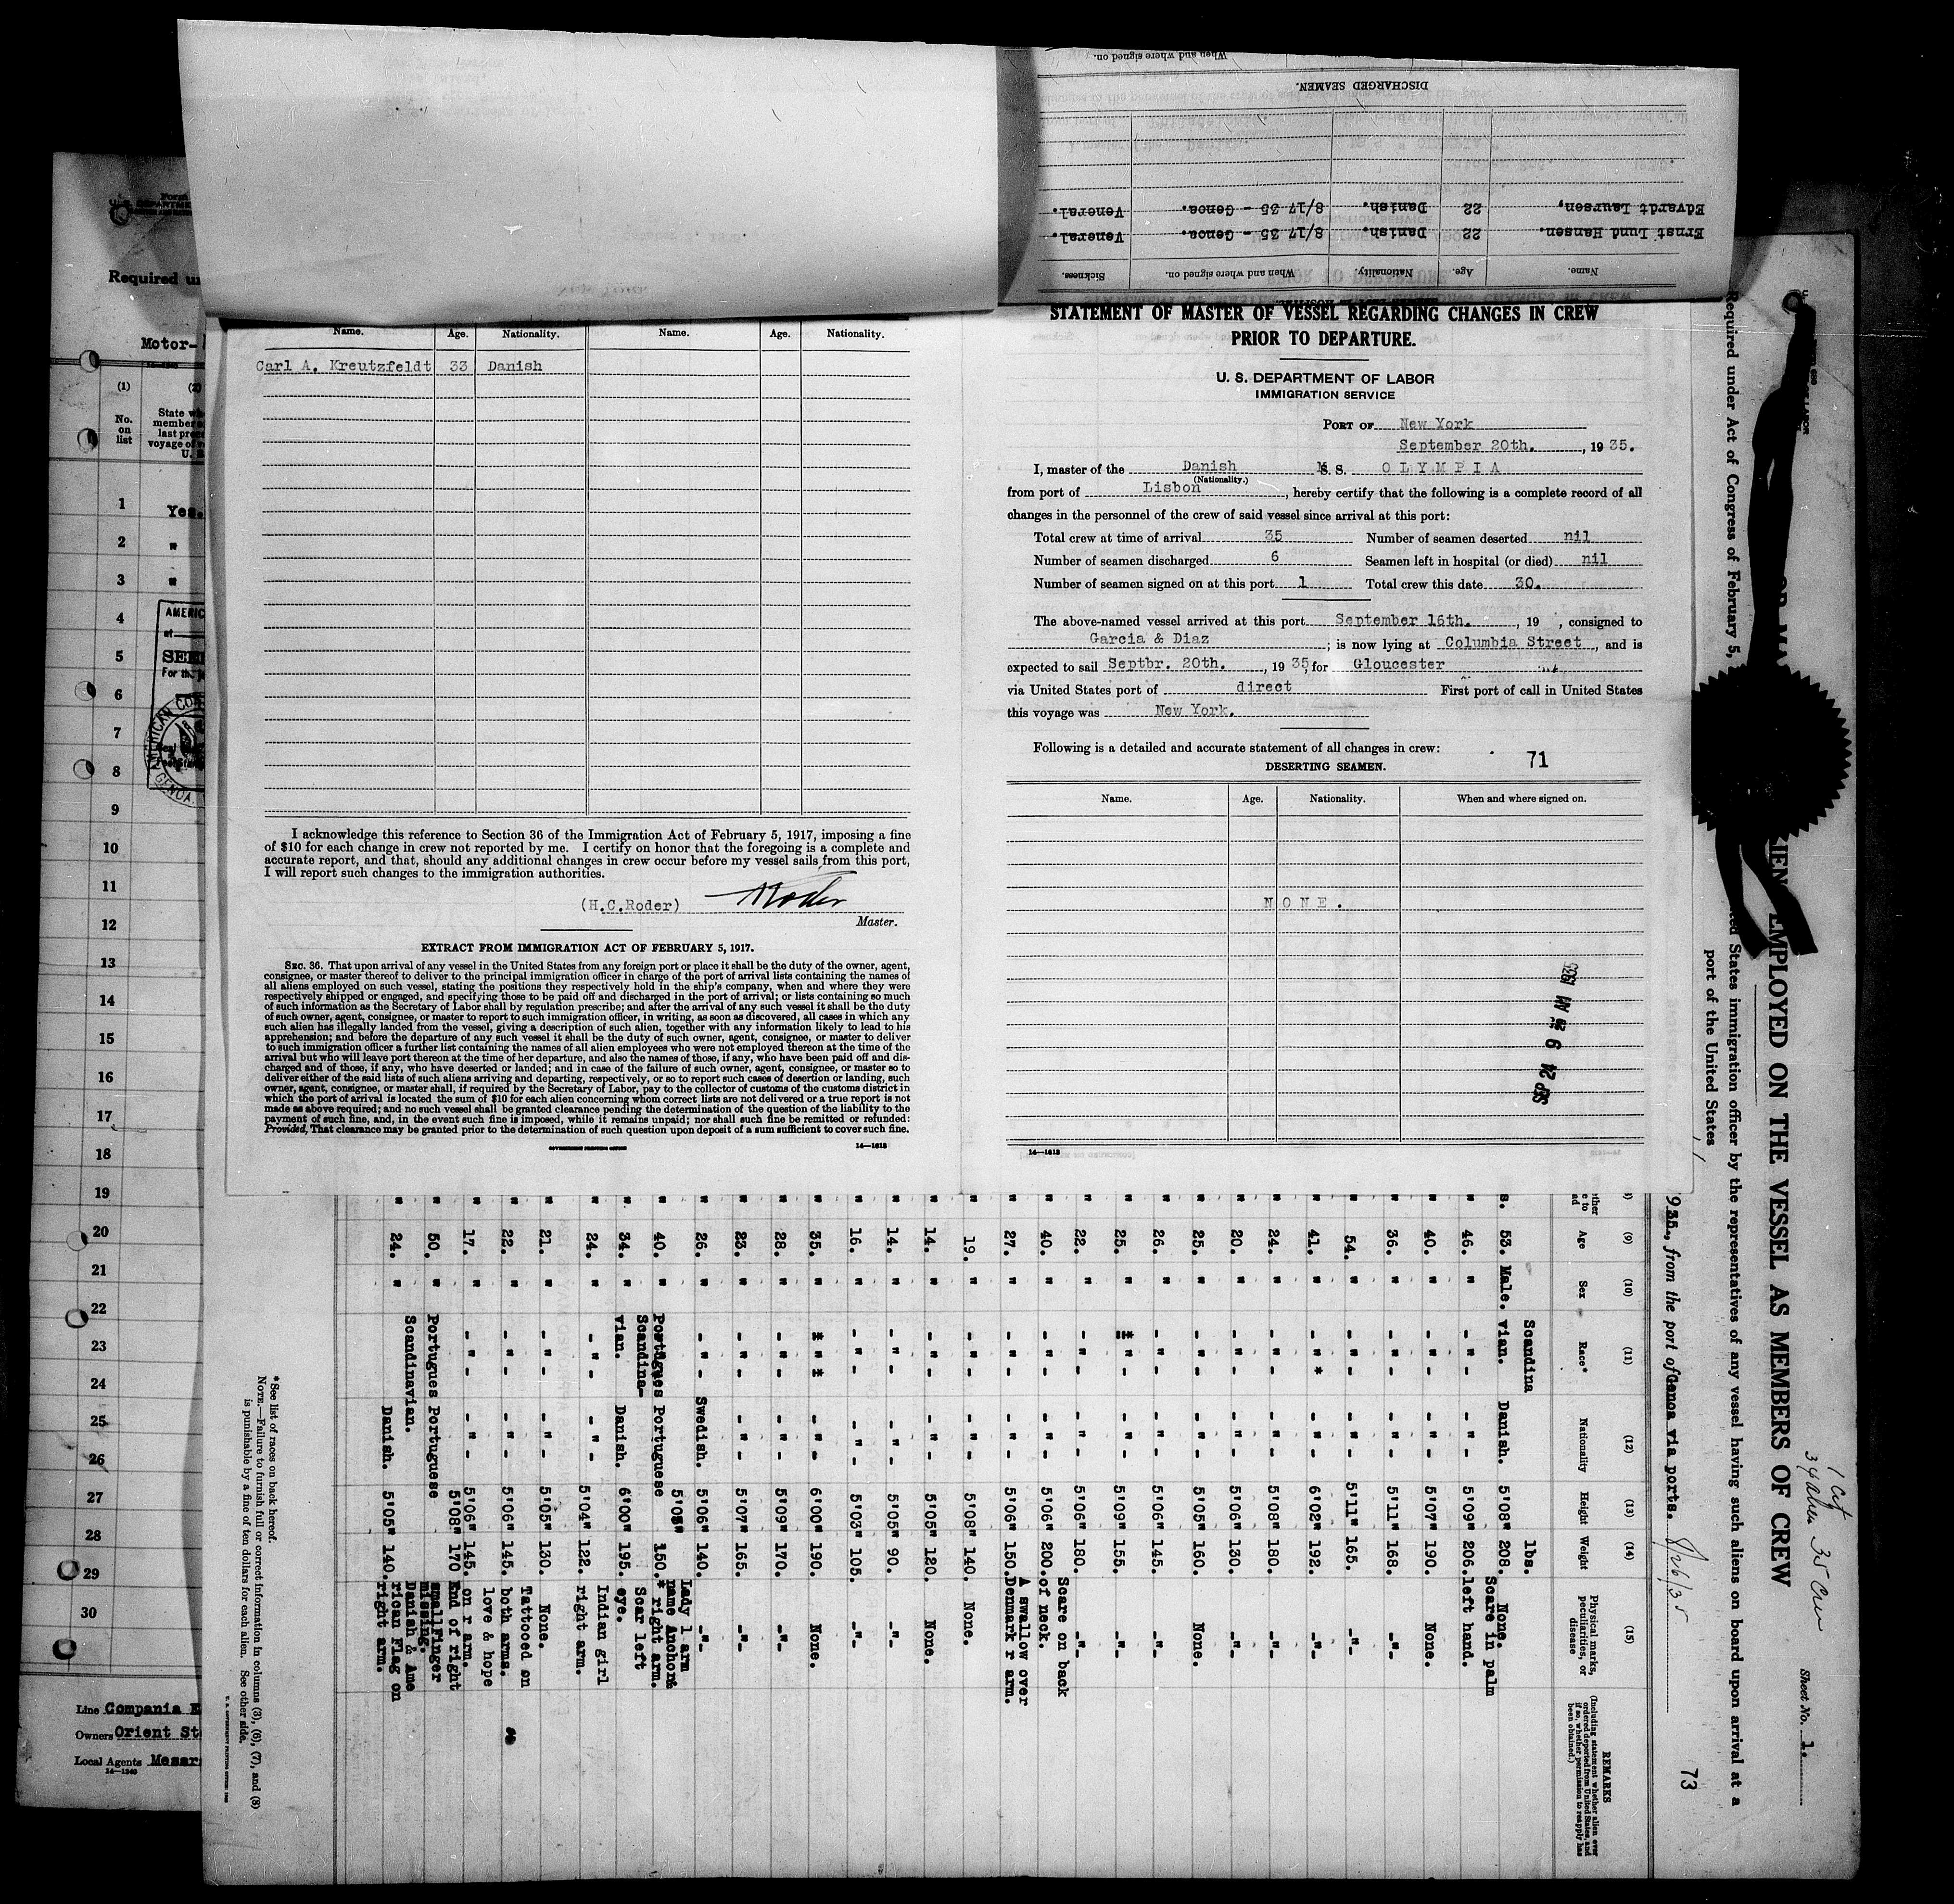 When and where signed on.
DISCHARGED SEAMEN.
Edvardt Laursen, 22 Danish. 8/17 35 - Genoa. Veneral.
Ernst Lund Hansen. 22 Danish. 8/17 35 - Genoa. Veneral.
Name. Age. Nationality. When and where signed on. Sickness.
Name. Age. Nationality. Name. Age. Nationality.
Carl A. Kreutzfeldt 33 Danish
I acknowledge this reference to Section 36 of the Immigration Act of February 5, 1917, imposing a fine
of $10 for each change in crew not reported by me. I certify on honor that the foregoing is a complete and
accurate report, and that, should any additional changes in crew occur before my vessel sails from this port,
I will report such changes to the immigration authorities.
(H.C.Roder) HRoder
Master.
EXTRACT FROM IMMIGRATION ACT OF FEBRUARY 5, 1917.
SEC. 36. That upon arrival of any vessel in the United States from any foreign port or place it shall be the duty of the owner, agent,
consignee, or master thereof to deliver to the principal immigration officer in charge of the port of arrival lists containing the names of
all aliens employed on such vessel, stating the positions they respectively hold in the ship's company, when and where they were
respectively shipped or engaged, and specifying those to be paid off and discharged in the port of arrival; or lists containing so much
of such information as the Secretary of Labor shall by regulation prescribe; and after the arrival of any such vessel it shall be the duty
of such owner, agent, consignee, or master to report to such immigration officer, in writing, as soon as discovered, all cases in which any
such alien has illegally landed from the vessel, giving a description of such alien, together with any information likely to lead to his
apprehension; and before the departure of any such vessel it shall be the duty of such owner, agent, consignee, or master to deliver
to such immigration officer a further list containing the names of all alien employees who were not employed thereon at the time of the
arrival but who will leave port thereon at the time of her departure, and also the names of those, if any, who have been paid off and dis-
charged and of those, if any, who have deserted or landed; and in case of the failure of such owner, agent, consignee, or master so to
deliver either of the said lists of such aliens arriving and departing, respectively, or so to report such cases of desertion or landing, such
owner, agent, consignee, or master shall, if required by the Secretary of Labor, pay to the collector of customs of the customs district in
which the port of arrival is located the sum of $10 for each alien concerning whom correct lists are not delivered or a true report is not
made as above required; and no such vessel shall be granted clearance pending the determination of the question of the liability to the
payment of such fine, and, in the event such fine is imposed, while it remains unpaid; nor shall such fine be remitted or refunded:
Provided, That clearance may be granted prior to the determination of such question upon deposit of a sum sufficient to cover such fine.
GOVERNMENT PRINTING OFFICE 14—1613
STATEMENT OF MASTER OF VESSEL REGARDING CHANGES IN CREW
PRIOR TO DEPARTURE.
U. S. DEPARTMENT OF LABOR
IMMIGRATION SERVICE
PORT OF New York
September 20th., 1935.
I, master of the Danish M.S. OLYMPIA
(Nationality.)
from port of Lisbon, hereby certify that the following is a complete record of all
changes in the personnel of the crew of said vessel since arrival at this port:
Total crew at time of arrival 35 Number of seamen deserted nil
Number of seamen discharged 6 Seamen left in hospital (or died) nil
Number of seamen signed on at this port 1 Total crew this date 30.
The above-named vessel arrived at this port September 16th., 19 , consigned to
Garcia & Diaz; is now lying at Columbia Street, and is
expected to sail Septbr. 20th., 1935, for Gloucester
via United States port of direct First port of call in United States
this voyage was New York.
Following is a detailed and accurate statement of all changes in crew:
DESERTING SEAMEN.
71
Name. Age. Nationality. When and where signed on.
NONE.
SEP 21 9 AM 1935
14—1613
Form
Required un
Motor-
14-1240
(1) (2)
No. on list
1 Yes.
2 "
3 "
4
5
6
7
8
9
10
11
12
13
14
15
16
17
18
19
20
21
22
23
24
25
26
27
28
29
30
AMERIC
at
SEEN
For the
AMERICAN CON
GENOA
Line Compania
Owners Orient St
Local Agents Messr
14—1240
1 cit
34 alien 35 Crew
Sheet No. 1.
EMPLOYED ON THE VESSEL AS MEMBERS OF CREW
Required under Act of Congress of February 5,
ed States immigration officer by the representatives of any vessel having such aliens on board upon arrival at a
port of the United States
935., from the port of Genoa via ports. 8/26/35
73
(9) (10) (11) (12) (13) (14) (15)
Age Sex Race* Nationality Height Weight Physical marks, peculiarities, or disease
REMARKS
(Including statement whether alien ever ordered deported from United States, and if so, whether permission to reapply has been obtained.)
s. 53. Male. Scandinavian. Danish. 5'08" lbs. 208. None.
" 46. " - " - - " - 5'09" 206. Scare in palm left hand.
" 40. " - " - - " - 5'07" 190. None.
" 36. " - " - - " - 5'11" 168. -"-
" 54. " - " - - " - 5'11" 165. -"-
" 41. " - " * - " - 6'02" 192. -"-
" 24. " - " - - " - 5'08" 180. -"-
" 20. " - " - - " - 5'06" 130. -"-
" 25. " - " - - " - 5'05" 160. None.
" 26. " - " - - " - 5'06" 145. -"-
" 25. " * " - - " - 5'09" 155. -"-
" 22. " - " - - " - 5'06" 180. -"-
" 40. " - " - - " - 5'06" 200. Scare on back of neck.
" 27. " - " - - " - 5'06" 150. A swallow over Denmark r arm.
19. " - " - - " - 5'08" 140. None.
" 14. " - " - - " - 5'05" 120. None.
" 14. " - " - - " - 5'05" 90. -"-
" 16. " - " - - " - 5'03" 105. -"-
" 35. " * " * - " - 6'00" 190. None.
" 28. " - " - - " - 5'09" 170. -"-
" 23. " - " - - " - 5'07" 165. -"-
" 26. " - " - Swedish. 5'06" 140. -"-
" 40. " Portugues Portuguese 5'05" 150. Lady l arm name Anchor right arm.
" 34. " Scandinavian. Danish. 6'00" 195. Scar left eye.
" 24. " - " - - " - 5'04" 122. Indian girl right arm.
" 21. " - " - - " - 5'05" 130. None.
" 22. " - " - - " - 5'06" 145. Tattooed on both arms.
" 17. " - " - - " - 5'06" 145. love & hope on r arm.
" 50. " Portugues Portuguese 5'08" 170 End of right small Finger missing.
" 24. " Scandinavian. Danish. 5'05" 140. Danish & American Flag on right arm.
* See list of races on back hereof.
NOTE.—Failure to furnish full or correct information in columns (3), (6), (7), and (8)
is punishable by a fine of ten dollars for each alien. See other side.